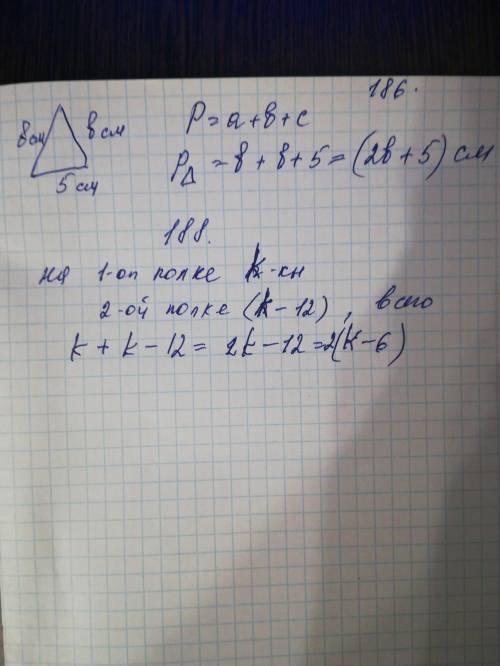 186.
всм всм
5 см
P = a + в + c
P△ = в + в + 5 = (2в + 5) см
188.
на 1-оп полке k-кн
2-ой полке (k - 12), всего
k + k - 12 = 2k - 12 = 2(k - 6)